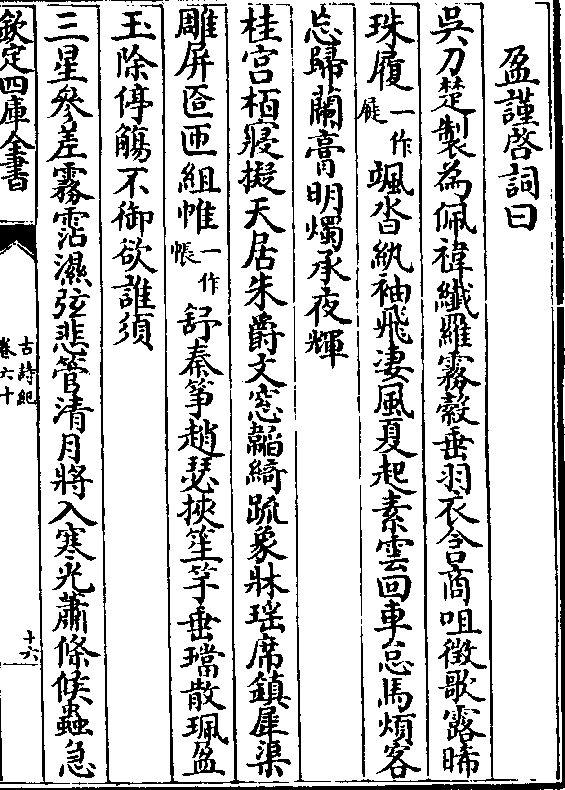 盈謹啓詞曰
吳刀楚製為佩褘纖羅霧縠垂羽衣含商咀徵歌露晞
珠履一作屣颯沓紈袖飛淒風夏起素雲回車怠馬煩客
忘歸蘭膏明燭承夜輝
桂宮栢寢擬天居朱爵文窓韜綺疏象牀瑤席鎮犀渠
雕屏匼匝組帷一作帳舒秦箏趙瑟挾笙竽垂璫散珮盈
玉除停觴不御欲誰須
三星參差露霑濕弦悲管清月將入寒光蕭條候蟲急
欽定四庫全書
古詩紀
卷六十
十六